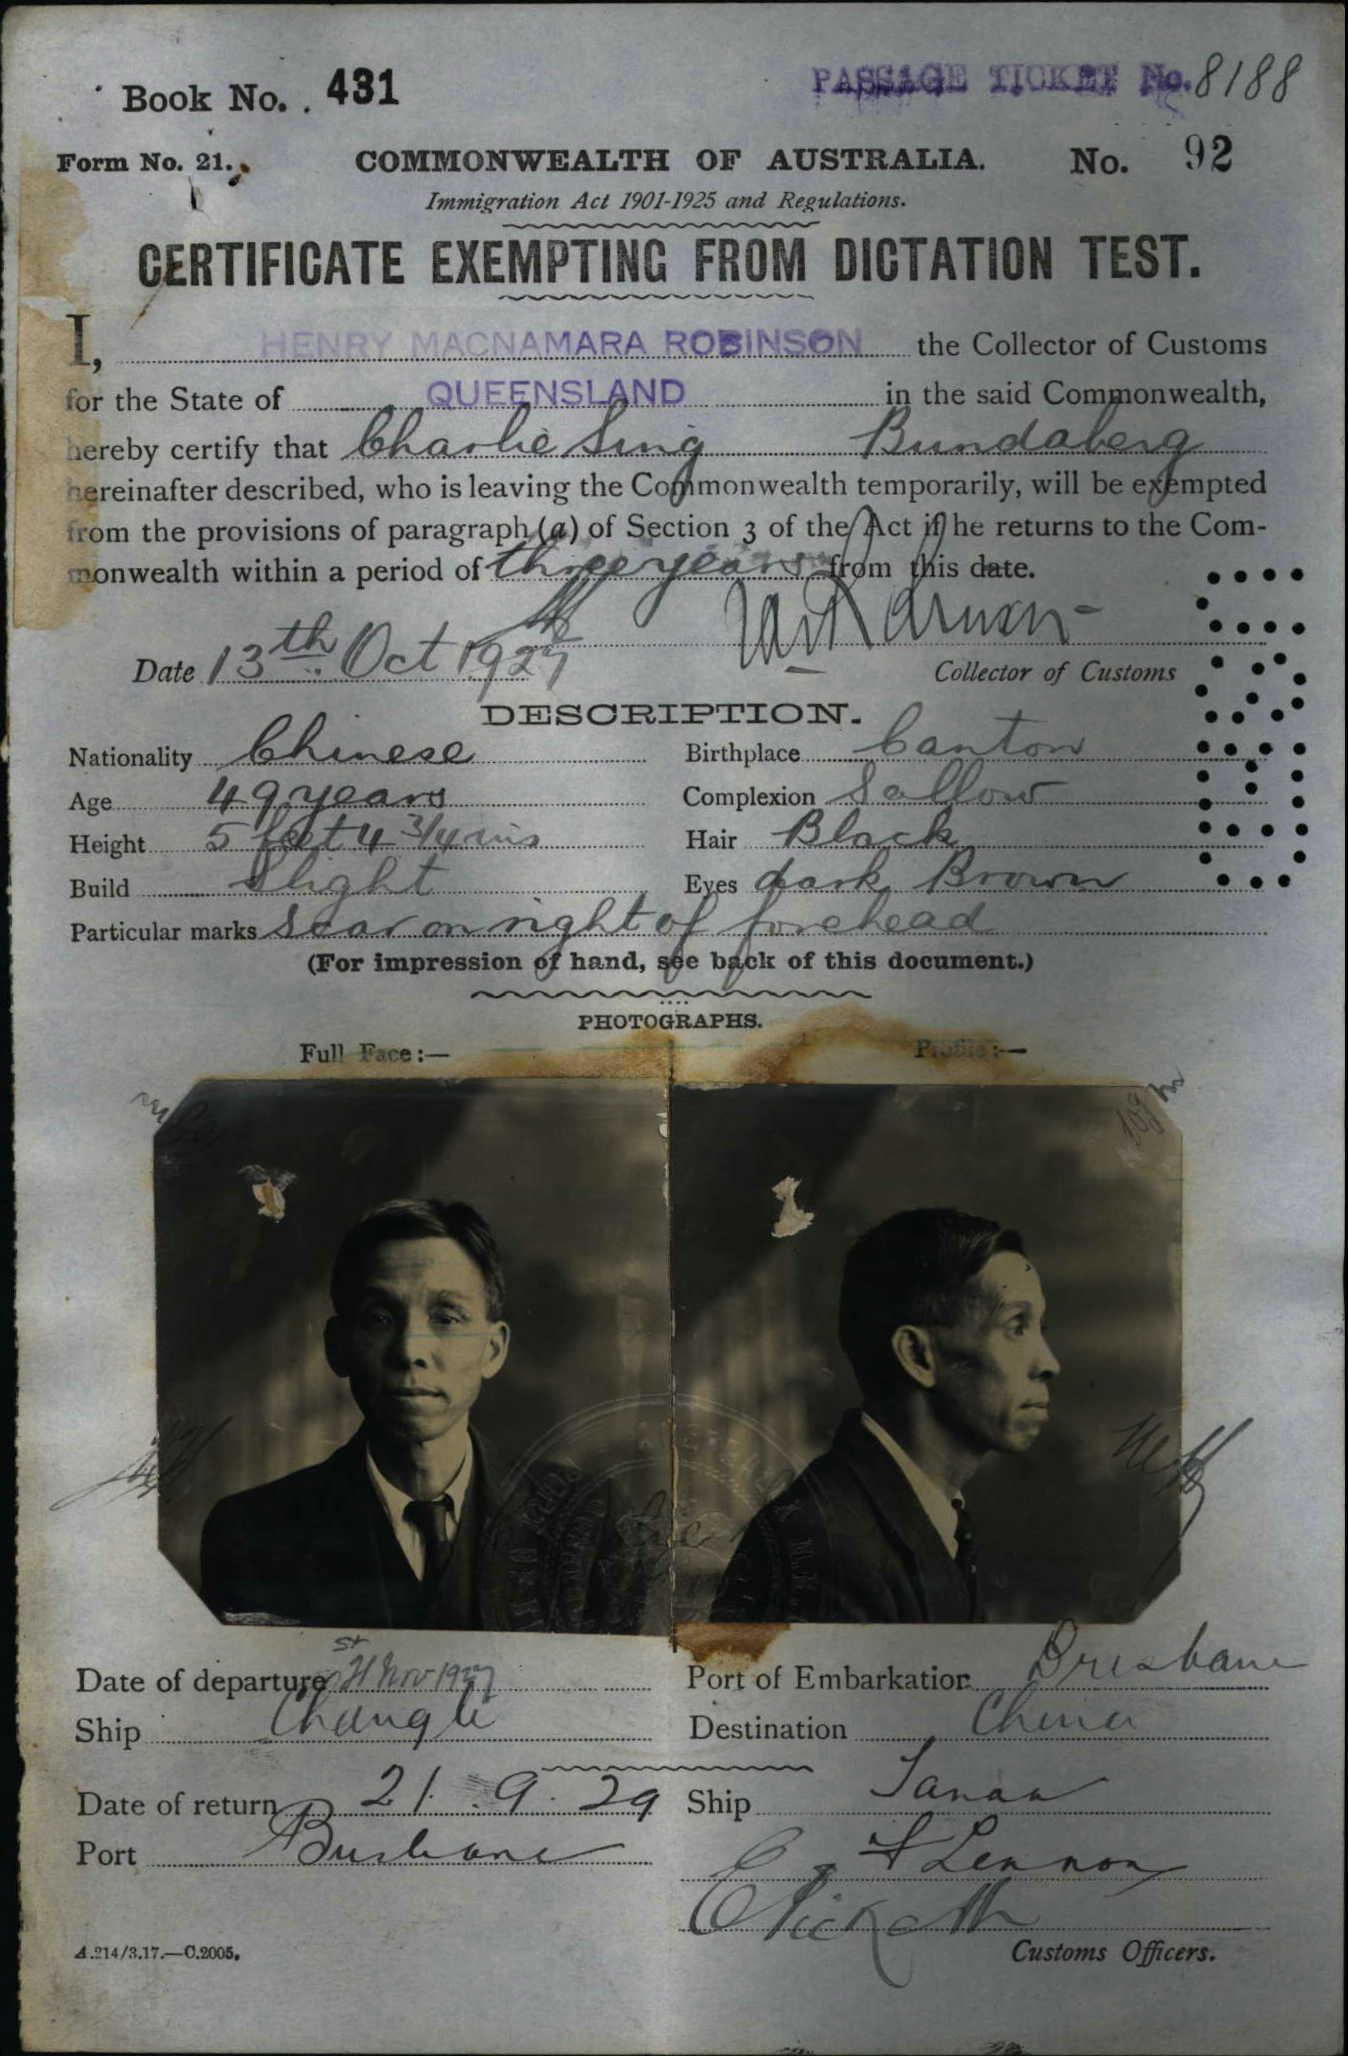 Book No. 431
PASSAGE TICKET No. 8188
Form No. 21.
COMMONWEALTH OF AUSTRALIA.
No. 92
Immigration Act 1901-1925 and Regulations.
CERTIFICATE EXEMPTING FROM DICTATION TEST.
I, HENRY MACNAMARA ROBINSON the Collector of Customs
for the State of QUEENSLAND in the said Commonwealth,
hereby certify that Charlie Sing Bundaberg
hereinafter described, who is leaving the Commonwealth temporarily, will be exempted
from the provisions of paragraph (a) of Section 3 of the Act if he returns to the Com-
monwealth within a period of three years from this date.
Date 13th Oct 1927
Collector of Customs
DESCRIPTION.
Nationality Chinese Birthplace Canton
Age 49 years Complexion Sallow
Height 5 feet 4 3/4 ins Hair Black
Build Slight Eyes dark Brown
Particular marks Scar on right of forehead
(For impression of hand, see back of this document.)
PHOTOGRAPHS.
Full Face:— Profile:—
Date of departure Nov 1927 Port of Embarkation Brisbane
Ship Changte Destination China
Date of return 21.9.29 Ship
Port Brisbane
Lennon
Customs Officers.
A.214/3.17.—C.2005.